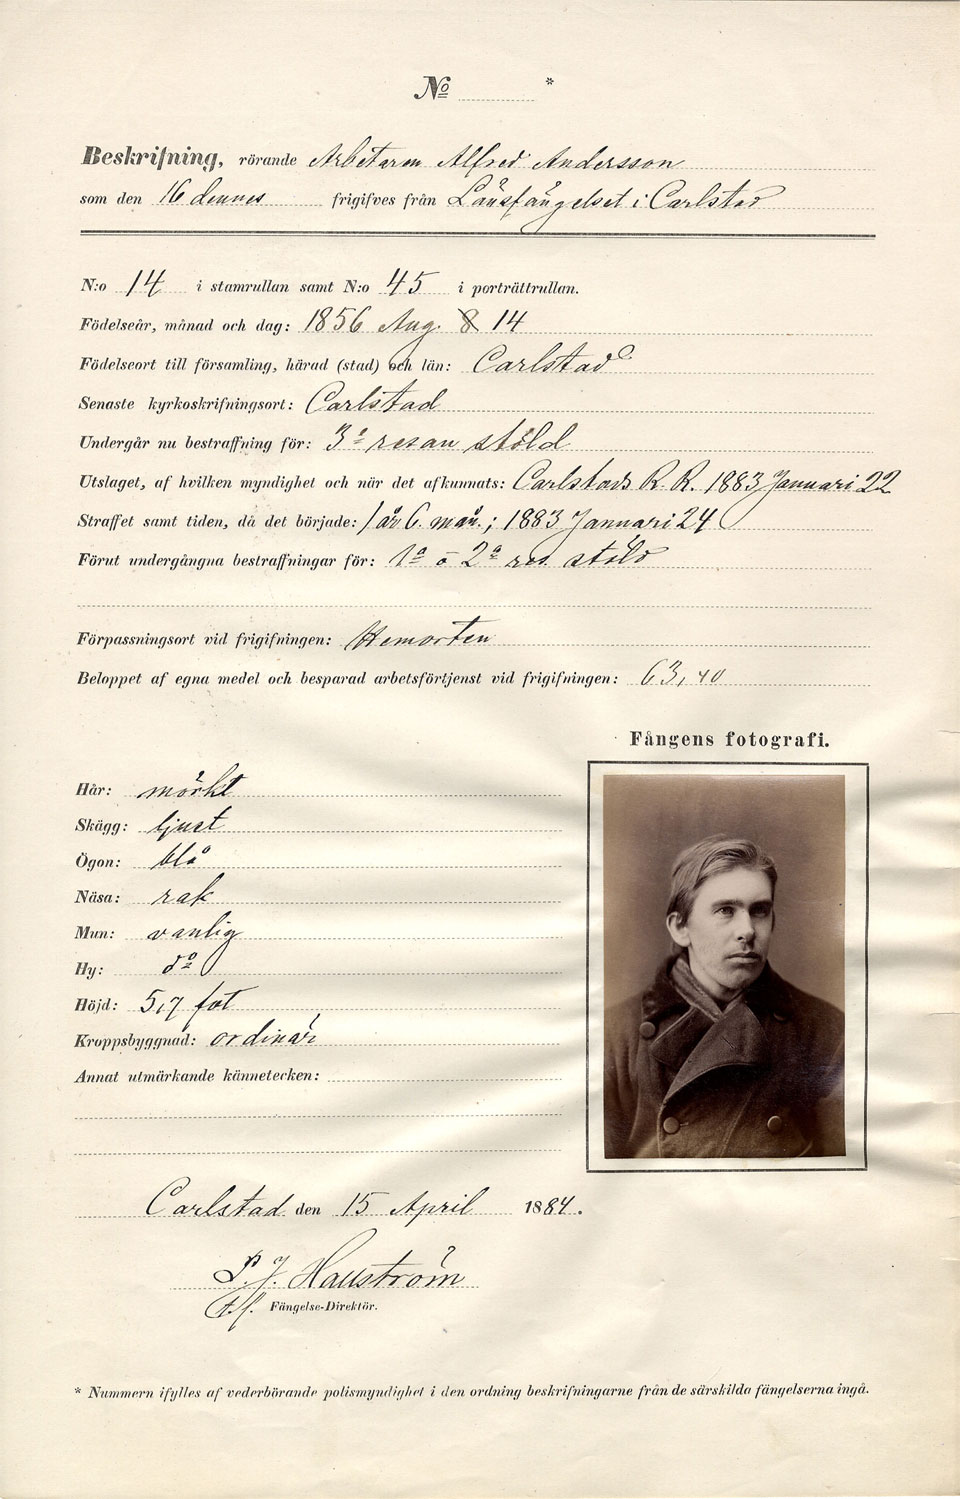 No *
Beskrifning, rörande Arbetaren Alfred Andersson
som den 16 dennes frigifves från Länsfängelset i Carlstad
N:o 14 i stamrullan samt N:o 45 i porträttrullan.
Födelseår, månad och dag: 1856 Aug. 8 14
Födelseort till församling, härad (stad) och län: Carlstad
Senaste kyrkoskrifningsort: Carlstad
Undergår nu bestraffning för: 3a resan stöld
Utslaget, af hvilken myndighet och när det afkunnats: Carlstads R. R. 1883 Januari 22
Straffet samt tiden, då det började: 1 år 6 mån.; 1883 Januari 24
Förut undergångna bestraffningar för: 1a o 2a res. stöld
Förpassningsort vid frigifningen: Hemorten
Beloppet af egna medel och besparad arbetsförtjenst vid frigifningen: 63,40
Fångens fotografi.
Hår: mörkt
Skägg: ljust
Ögon: blå
Näsa: rak
Mun: vanlig
Hy: do
Höjd: 5,7 fot
Kroppsbyggnad: ordinär
Annat utmärkande kännetecken:
Carlstad den 15 April 1884.
P. J. Hallström
t.f. Fängelse-Direktör.
* Nummern ifylles af vederbörande polismyndighet i den ordning beskrifningarne från de särskilda fängelserna ingå.